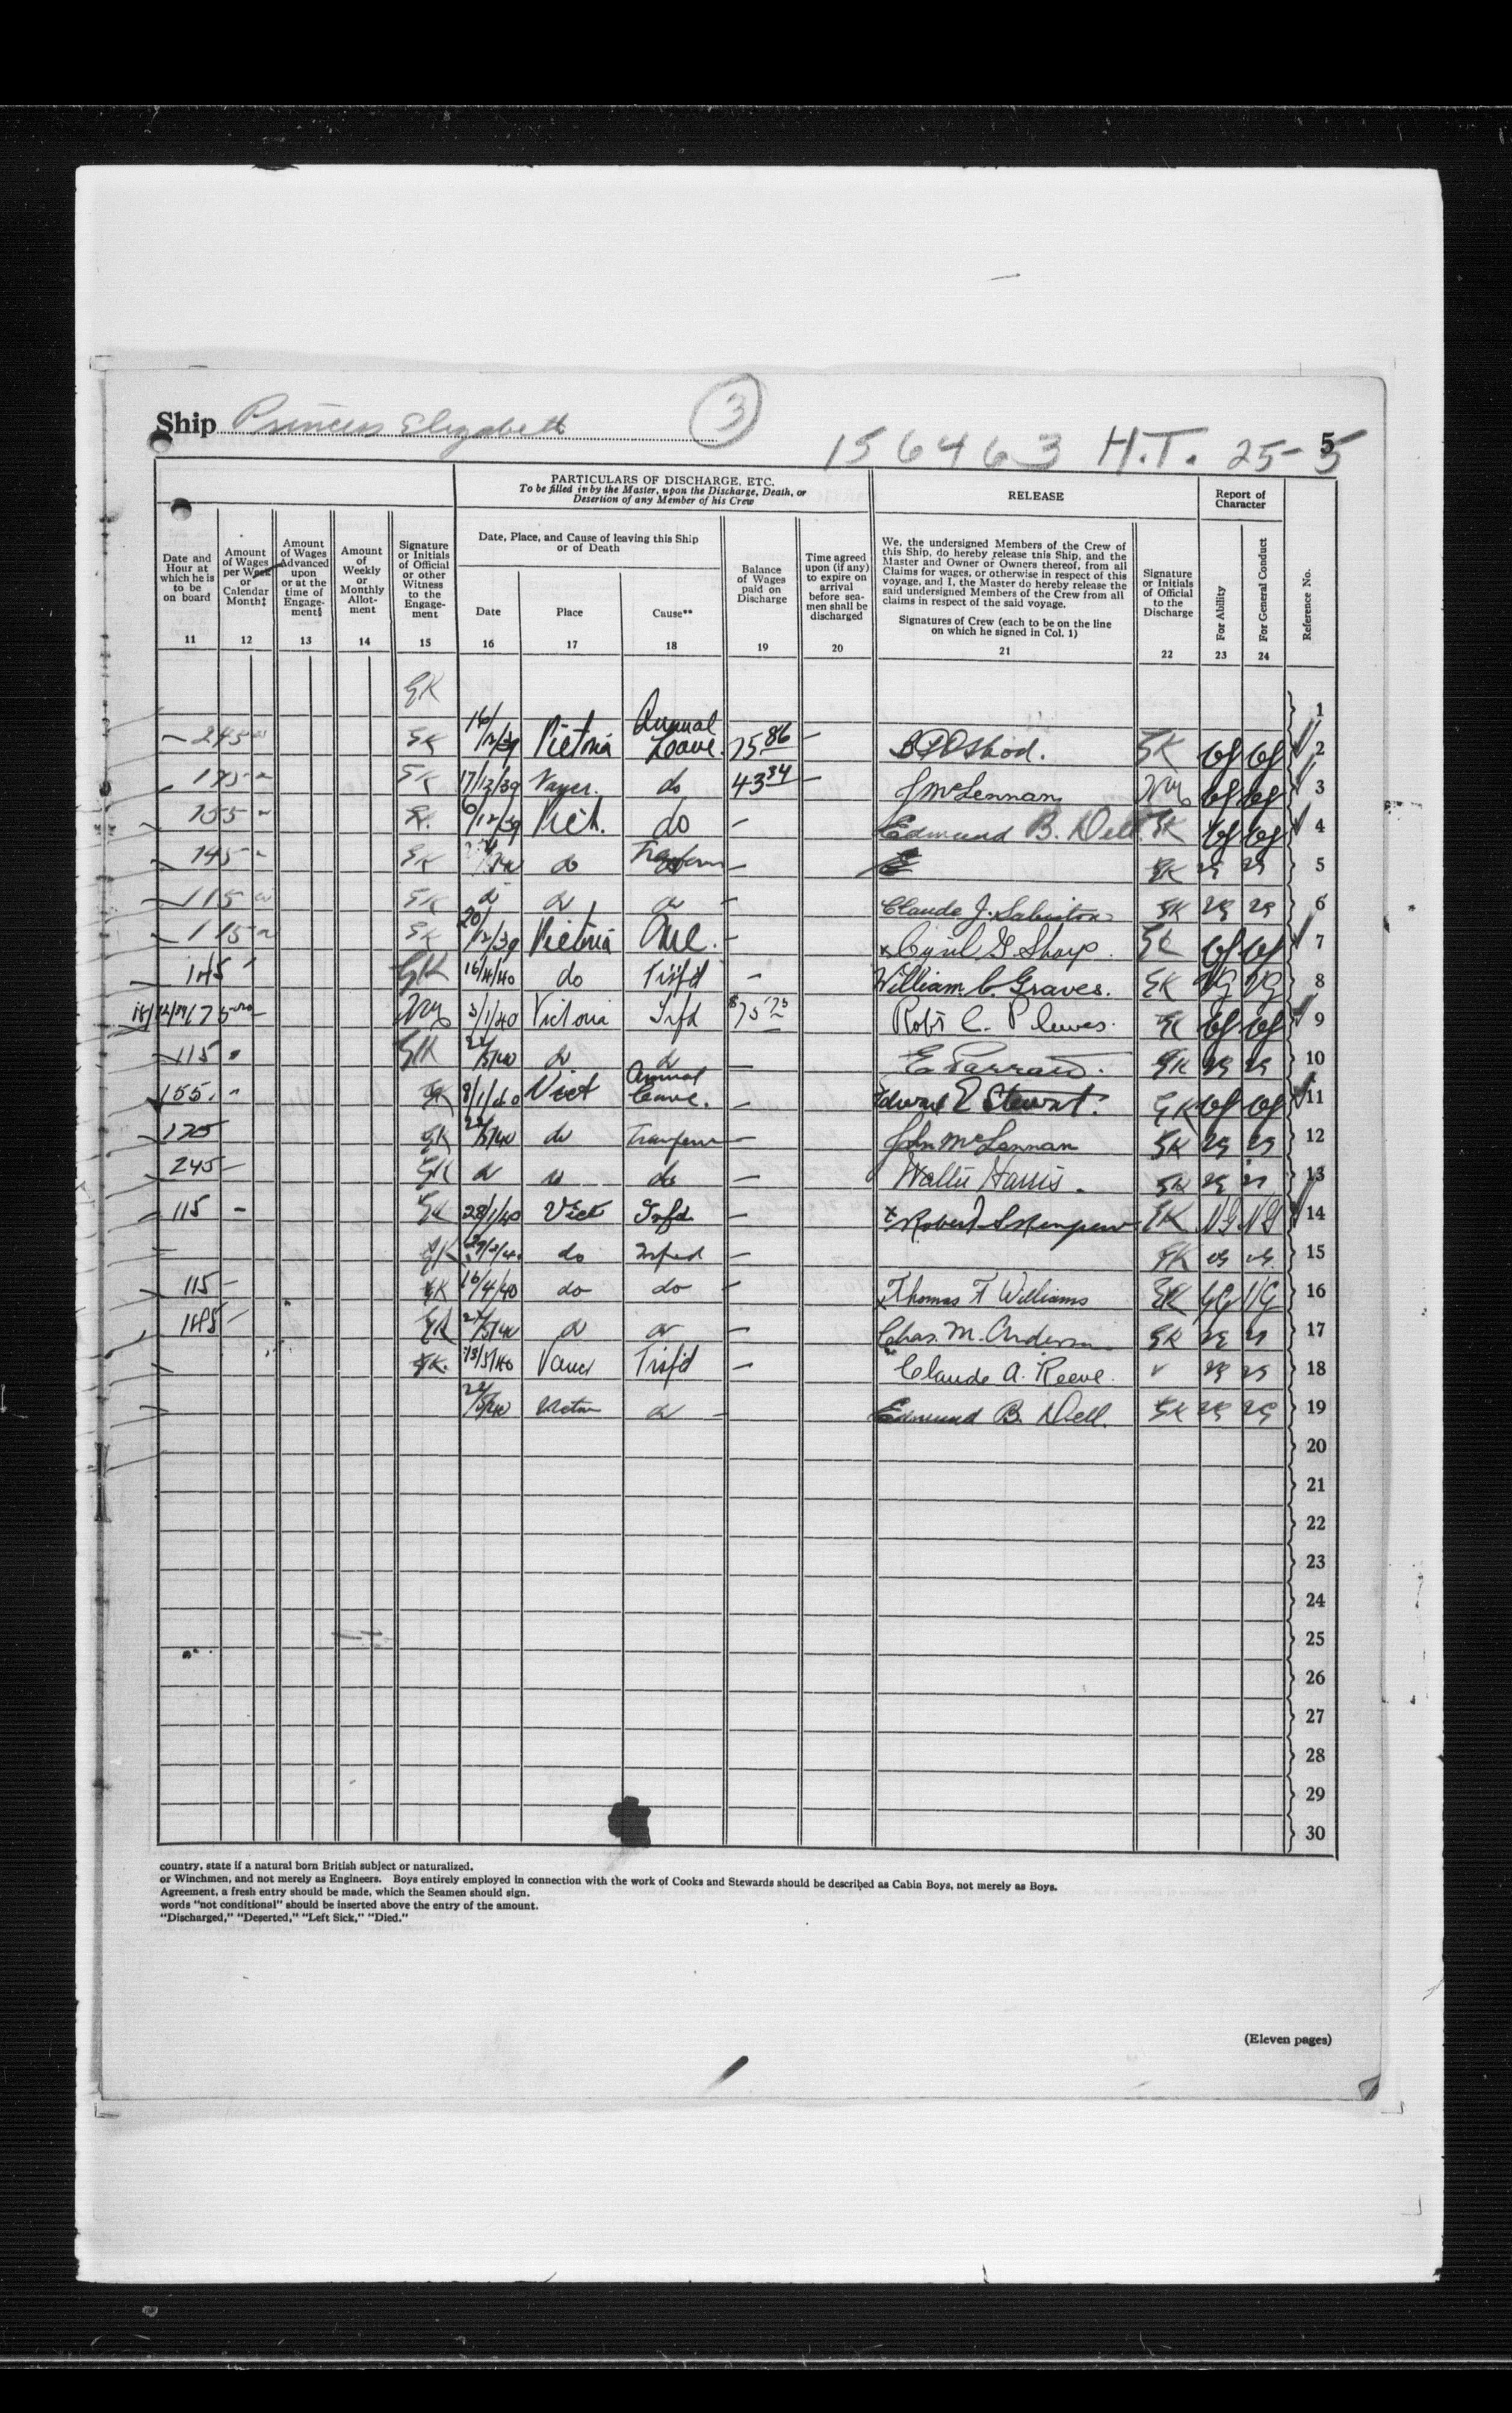 Ship Princess Elizabeth 3
156463 H.T. 25-5 5
PARTICULARS OF DISCHARGE, ETC.
To be filled in by the Master, upon the Discharge, Death, or
Desertion of any Member of his Crew
RELEASE
Report of
Character
Date and
Hour at
which he is
to be
on board
11
Amount
of Wages
per Week
or
Calendar
Month‡
12
Amount
of Wages
Advanced
upon
or at the
time of
Engage-
ment‖
13
Amount
of
Weekly
or
Monthly
Allot-
ment
14
Signature
or Initials
of Official
or other
Witness
to the
Engage-
ment
15
Date, Place, and Cause of leaving this Ship
or of Death
Date
16
Place
17
Cause**
18
Balance
of Wages
paid on
Discharge
19
Time agreed
upon (if any)
to expire on
arrival
before sea-
men shall be
discharged
20
We, the undersigned Members of the Crew of
this Ship, do hereby release this Ship, and the
Master and Owner or Owners thereof, from all
Claims for wages, or otherwise in respect of this
voyage, and I, the Master do hereby release the
said undersigned Members of the Crew from all
claims in respect of the said voyage.
Signatures of Crew (each to be on the line
on which he signed in Col. 1)
21
Signature
or Initials
of Official
to the
Discharge
22
For Ability
23
For General Conduct
24
Reference No.
GK 1
245 GK 16/12/39 Victoria Annual Leave. 75 86 — GK VG VG 2
175 GK 17/12/39 Vancr. do 43 34 — J McLennan VG VG 3
155 GK. 6/12/39 Vict. do — Edmund B. Dell. GK VG VG 4
145 GK do Transfer — GK VG VG 5
115 GK do do do — Claude J. Sabiston GK VG VG 6
115 GK 20/12/39 Victoria — x Cyril G. Sharp. GK VG VG 7
145 GK 16/4/40 do Trsf'd — William C. Graves. GK VG VG 8
18/12/39 175 3/1/40 Victoria Trfd $75 75 Robt C. Plewes. GK VG VG 9
115 GK do do — E Parrato. GK VG VG 10
155. GK 8/1/40 Vict Annual Leave. — Edward E Stewart. GK VG VG 11
175 GK do Transfer — John McLennan GK VG VG 12
245 — GK do do do — Walter Harris. GK VG VG 13
115 — GK 28/1/40 Vict Trfd. — GK VG VG 14
GK do — GK VG VG 15
115 — GK 16/4/40 do do — x Thomas F Williams GK VG VG 16
GK do do — Chas. M. Anderson GK VG VG 17
GK. Vancr Trsf'd — Claude A. Reeve. VG VG 18
do — Edmund B. Dell. GK VG VG 19
20
21
22
23
24
25
26
27
28
29
30
country, state if a natural born British subject or naturalized.
or Winchmen, and not merely as Engineers. Boys entirely employed in connection with the work of Cooks and Stewards should be described as Cabin Boys, not merely as Boys.
Agreement, a fresh entry should be made, which the Seamen should sign.
words "not conditional" should be inserted above the entry of the amount.
"Discharged," "Deserted," "Left Sick," "Died."
(Eleven pages)